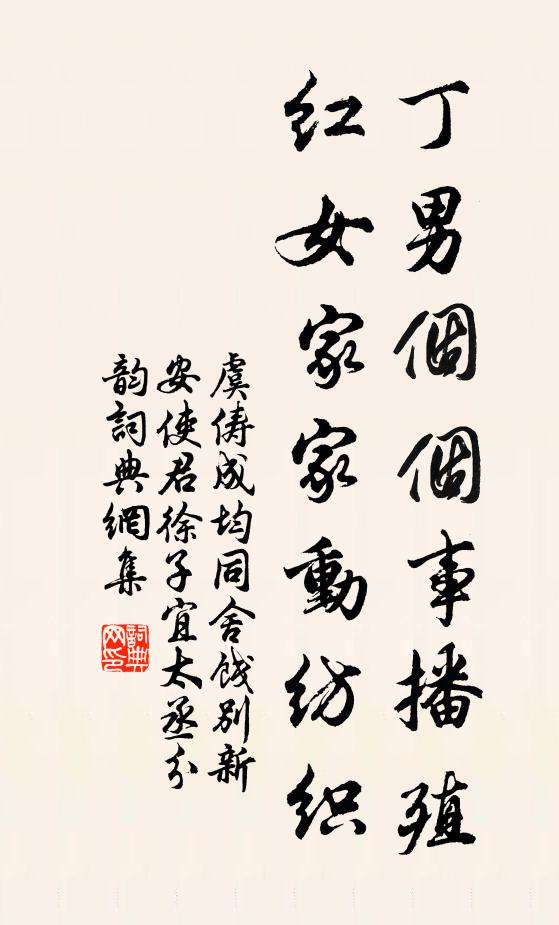 丁男個個事播殖
紅女家家動紡織
虞儔成均同舍餞別新
安使君徐子宜太丞分
韵詞典網集
詞典
网印